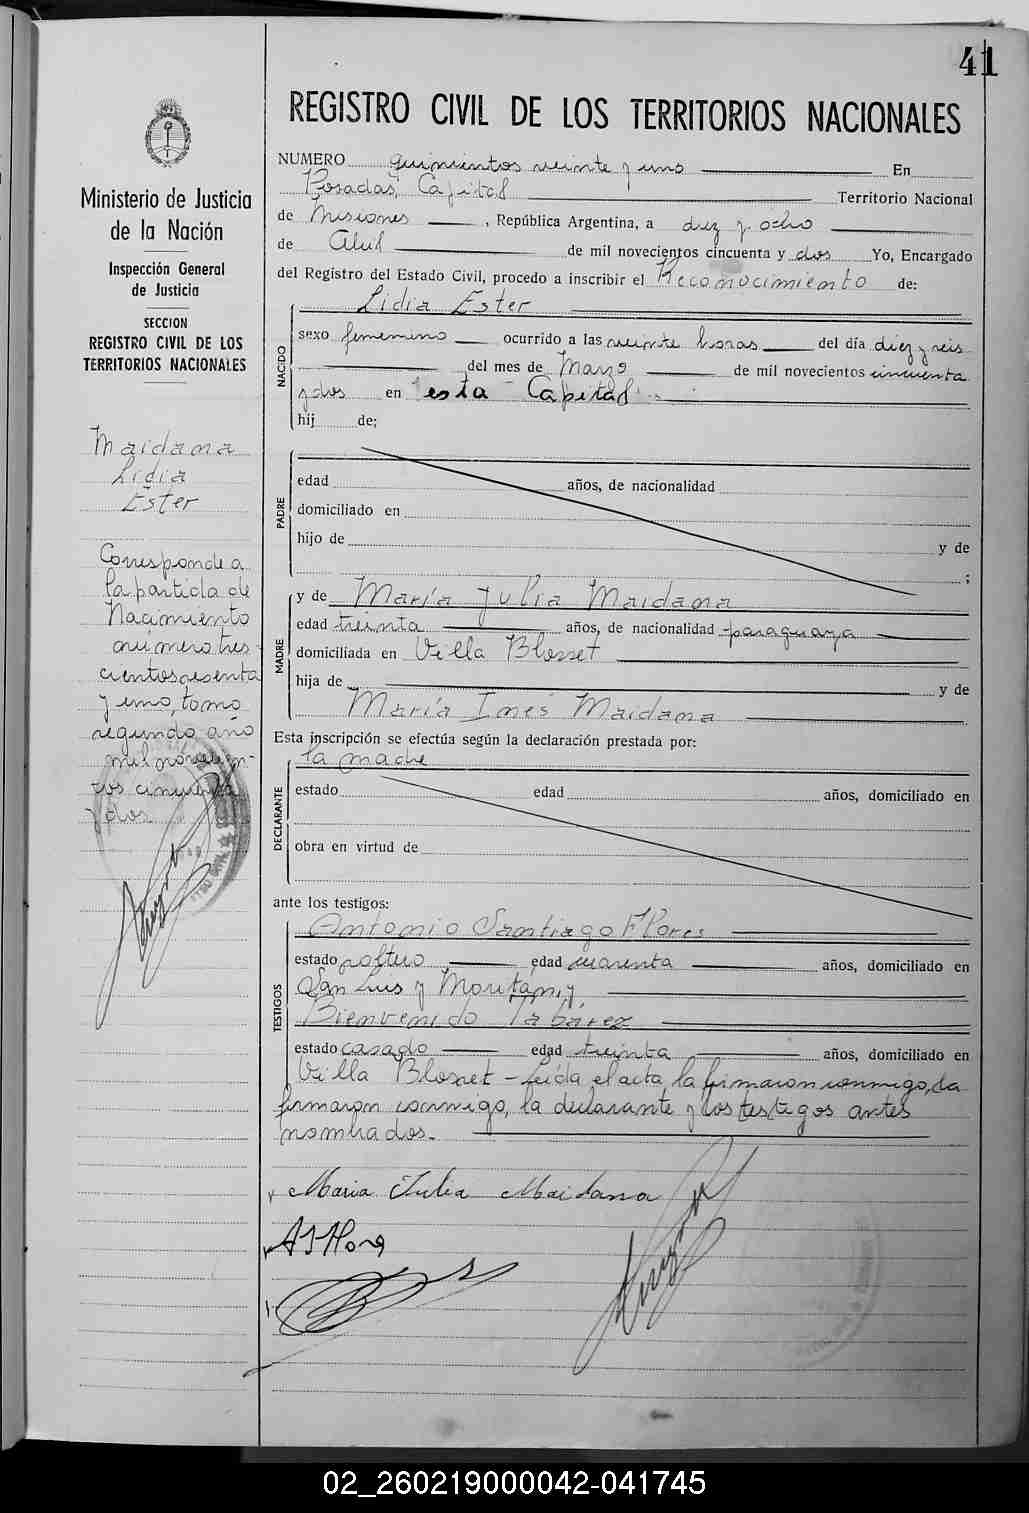 41
REGISTRO CIVIL DE LOS TERRITORIOS NACIONALES
Ministerio de Justicia
de la Nación
Inspección General
de Justicia
SECCION
REGISTRO CIVIL DE LOS
TERRITORIOS NACIONALES
Maidana
Lidia
Ester
Corresponde a
la partida de
Nacimiento
número tres
cientos sesenta
y uno, tomo
segundo, año
mil novecien-
tos cincuenta
y dos
NUMERO quinientos veinte y uno En
Posadas, Capital Territorio Nacional
de Misiones , República Argentina, a diez y ocho
de Abril de mil novecientos cincuenta y dos Yo, Encargado
del Registro del Estado Civil, procedo a inscribir el Reconocimiento de:
NACIDO
Lidia Ester
sexo femenino ocurrido a las veinte horas del día diez y seis
del mes de Marzo de mil novecientos cincuenta
y dos en esta Capital
hij de;
PADRE
edad años, de nacionalidad
domiciliado en
hijo de y de
;
MADRE
y de María Julia Maidana
edad treinta años, de nacionalidad paraguaya
domiciliada en Villa Blosset
hija de y de
María Inés Maidana
Esta inscripción se efectúa según la declaración prestada por:
DECLARANTE
la madre
estado edad años, domiciliado en
obra en virtud de
ante los testigos:
TESTIGOS
Antonio Santiago Flores
estado soltero edad cuarenta años, domiciliado en
San Luis y Moritán, y
Bienvenido Tabárez
estado casado edad treinta años, domiciliado en
Villa Blosset - Leída el acta, la firmaron conmigo, la
firmaron conmigo, la declarante y los testigos antes
nombrados.
Maria Julia Maidana
02_260219000042-041745